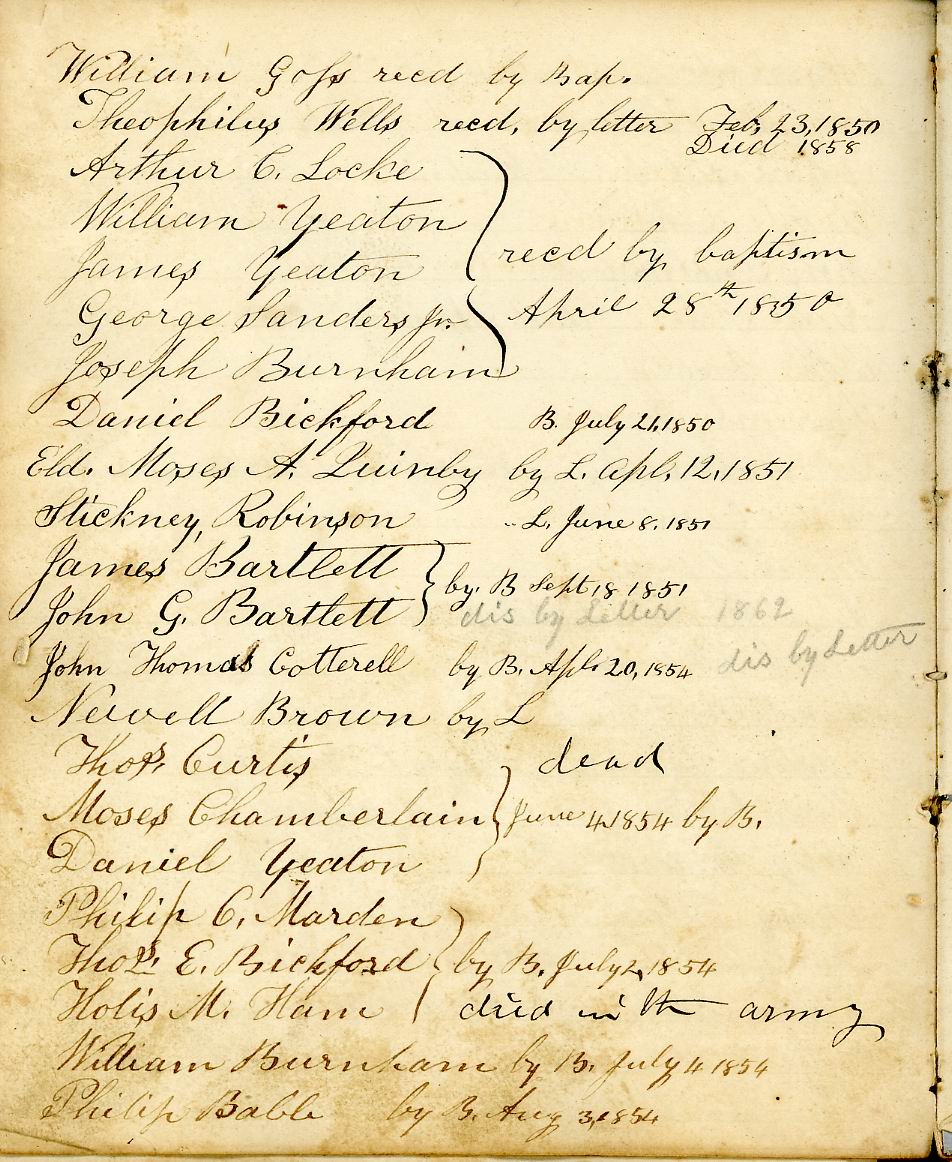 William Goss recd by Bap.
Theophilus Wells recd, by letter Feb, 23, 1850
Died 1858
Arthur C. Locke
William Yeaton
James Yeaton recd by baptism
George Sanders Jr. April 28th 1850
Joseph Burnham
Daniel Bickford B. July 21, 1850
Eld. Moses A. Quinby by L. Apl. 12, 1851
Stickney Robinson " L. June 8. 1851
James Bartlett
by B Sept 18 1851
John G. Bartlett dis by Letter 1862
John Thomas Cotterell by B. Apl. 20, 1854 dis by Letter
Newell Brown by L
Thos. Curtis dead
Moses Chamberlain June 4, 1854 by B.
Daniel Yeaton
Philip C. Marden
Thos. E. Bickford by B. July 2, 1854
Holis M. Ham died in th army
William Burnham by B. July 4 1854
Philip Babb by B. Aug 3, 1854